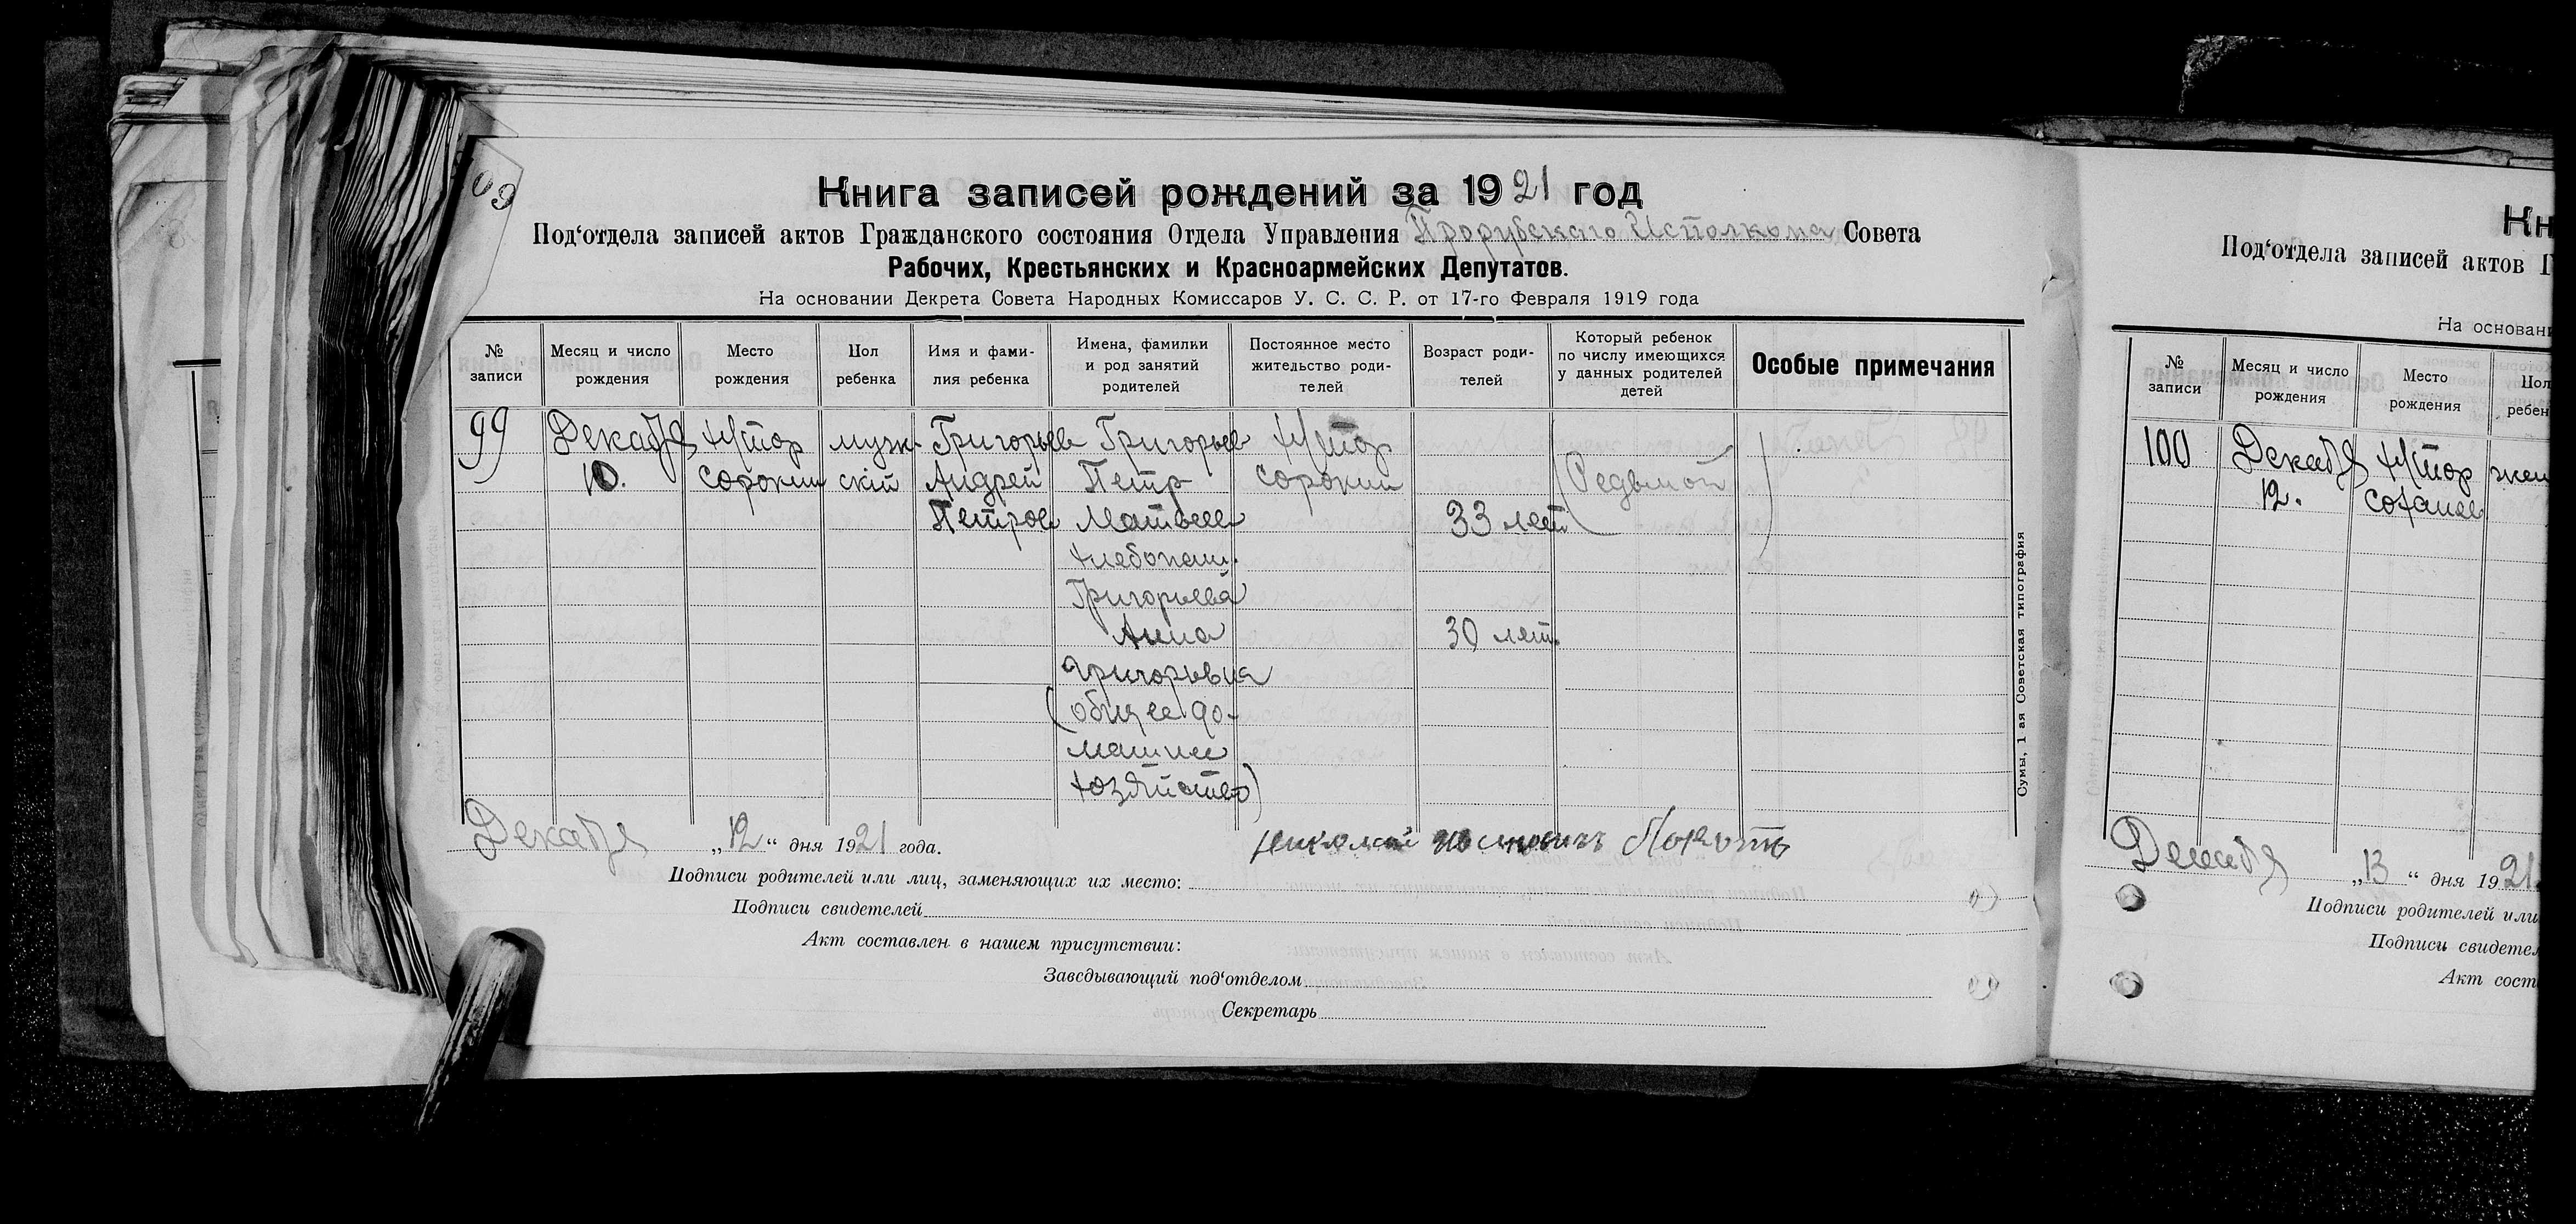 09
Книга записей рождений за 1921 год
Под‘отдела записей актов Гражданского состояния Отдела Управления Прорубского Исполкома Совета
Рабочих, Крестьянских и Красноармейских Депутатов.
На основании Декрета Совета Народных Комиссаров У. С. С. Р. от 17-го Февраля 1919 года
№ записи
Месяц и число рождения
Место рождения
Пол ребенка
Имя и фами-
лия ребенка
Имена, фамилии
и род занятий
родителей
Постоянное место
жительство роди-
телей
Возраст роди-
телей
Который ребенок
по числу имеющихся
у данных родителей
детей
Особые примечания
99
Декабря
10.
Х/утор
Сорокин
муж-
скій
Григорьев
Андрей
Петров
Григорьев
Петр
Матвеев
хлебопаш.
Григорьева
Анна
Григорьевна
(общее до-
машнее
хозяйство)
Х/утор
Сорокин
33 лет
30 лет.
Седьмой
Сумы, 1 ая Советская типография
Декабря „12“ дня 1921 года.
Николай
Подписи родителей или лиц, заменяющих их место:
Подписи свидетелей
Акт составлен в нашем присутствии:
Заведывающий под‘отделом
Секретарь
Кн
Под‘отдела записей актов Г
На основани
№ записи
Месяц и число рождения
Место рождения
Пол
ребен
100
Декабря
12.
Х/утор
жен
Декабря „13“ дня 1921
Подписи родителей или
Подписи свидетел
Акт сост